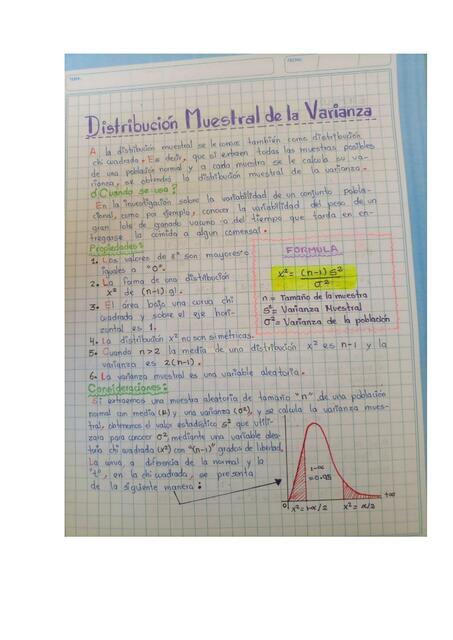 TEMA:
FECHA:
Distribución Muestral de la Varianza
A la distribución muestral se le conoce también como distribución
chi cuadrada. Es decir, que si extraen todas las muestras posibles
de una población normal y a cada muestra se le calcula su va-
rianza, se obtendrá la distribución muestral de la varianza.
¿Cuándo se usa?
En la investigación sobre la variabilidad de un conjunto pobla-
cional, como por ejemplo, conocer la variabilidad del peso de un
gran lote de ganado vacuno o del tiempo que tarda en en-
tregarse la comida a algun comensal.
Propiedades:
1. Los valores de s² son mayores o
iguales a "0".
2. La forma de una distribución
x² de (n-1) gl.
3. El área bajo una curva chi
cuadrada y sobre el eje hori-
zontal es 1.
4. La distribución x² no son simétricas.
5. Cuando n>2 la media de una distribución x² es n-1 y la
varianza es 2(n-1).
6. La varianza muestral es una variable aleatoria.
FORMULA
x² = (n-1) s²
σ²
n = Tamaño de la muestra
s² = Varianza Muestral
σ² = Varianza de la población
Consideraciones:
Si extraemos una muestra aleatoria de tamaño "n" de una población
normal con media (μ) y una varianza (σ²), y se calcula la varianza mues-
tral, obtenemos el valor estadístico s² que utili-
zara para conocer σ², mediante una variable alea-
toria chi cuadrada (x²) con "(n-1)" grados de libertad.
La curva, a diferencia de la normal y la
"t", en la chi cuadrada, se presenta
de la siguiente manera:
1-α
=0.95
+∞
0
x²=1-α/2
x²=α/2